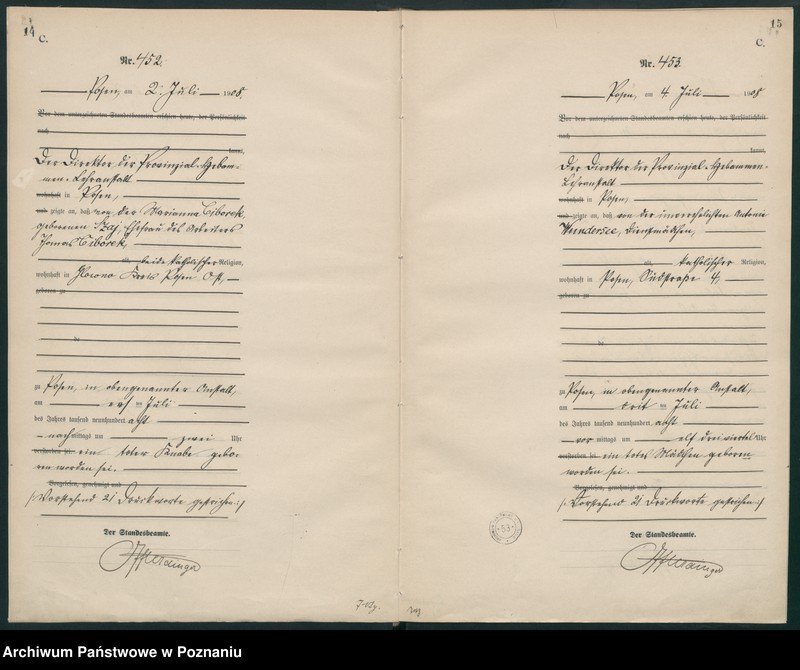 14
C.
Nr. 452.
Posen, am 2. Juli 1908.
Vor dem unterzeichneten Standesbeamten erschien heute, der Persönlichkeit
nach
kannt,
Der Direktor der Provinzial-Hebam-
men-Lehranstalt
wohnhaft in Posen,
und zeigte an, daß von der Marianna Ciborek,
geborenen Szaj, Ehefrau des Arbeiters
Thomas Ciborek,
beide katholischer Religion,
wohnhaft in Glowno Kreis Posen Ost,
geboren zu
de
zu Posen, in obengenannter Anstalt,
am ersten Juli
des Jahres tausend neunhundert acht
nachmittags um zwei Uhr
verstorben sei ein toter Knabe gebo-
ren worden sei.
Vorgelesen, genehmigt und
/: Vorstehend 21 Druckworte gestrichen :/
Der Standesbeamte.
15
C.
Nr. 453.
Posen, am 4. Juli 1908
Vor dem unterzeichneten Standesbeamten erschien heute, der Persönlichkeit
nach
kannt,
Der Direktor der Provinzial-Hebammen-
Lehranstalt
wohnhaft in Posen,
und zeigte an, daß von der unverehelichten Antonie
Wundersee, Dienstmädchen,
katholischer Religion,
wohnhaft in Posen, Südstraße 4,
geboren zu
de
zu Posen, in obengenannter Anstalt,
am dritten Juli
des Jahres tausend neunhundert acht
vormittags um elf dreiviertel Uhr
verstorben sei ein totes Mädchen geboren
worden sei.
Vorgelesen, genehmigt und
/: Vorstehend 21 Druckworte gestrichen :/
Der Standesbeamte.
53
Archiwum Państwowe w Poznaniu